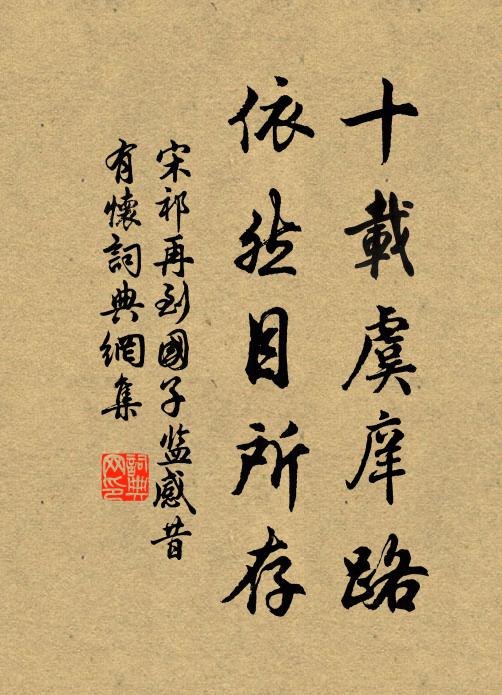 十載虞庠路
依然目所存
宋祁再到國子监感昔
有懷詞典網集
詞典
网印